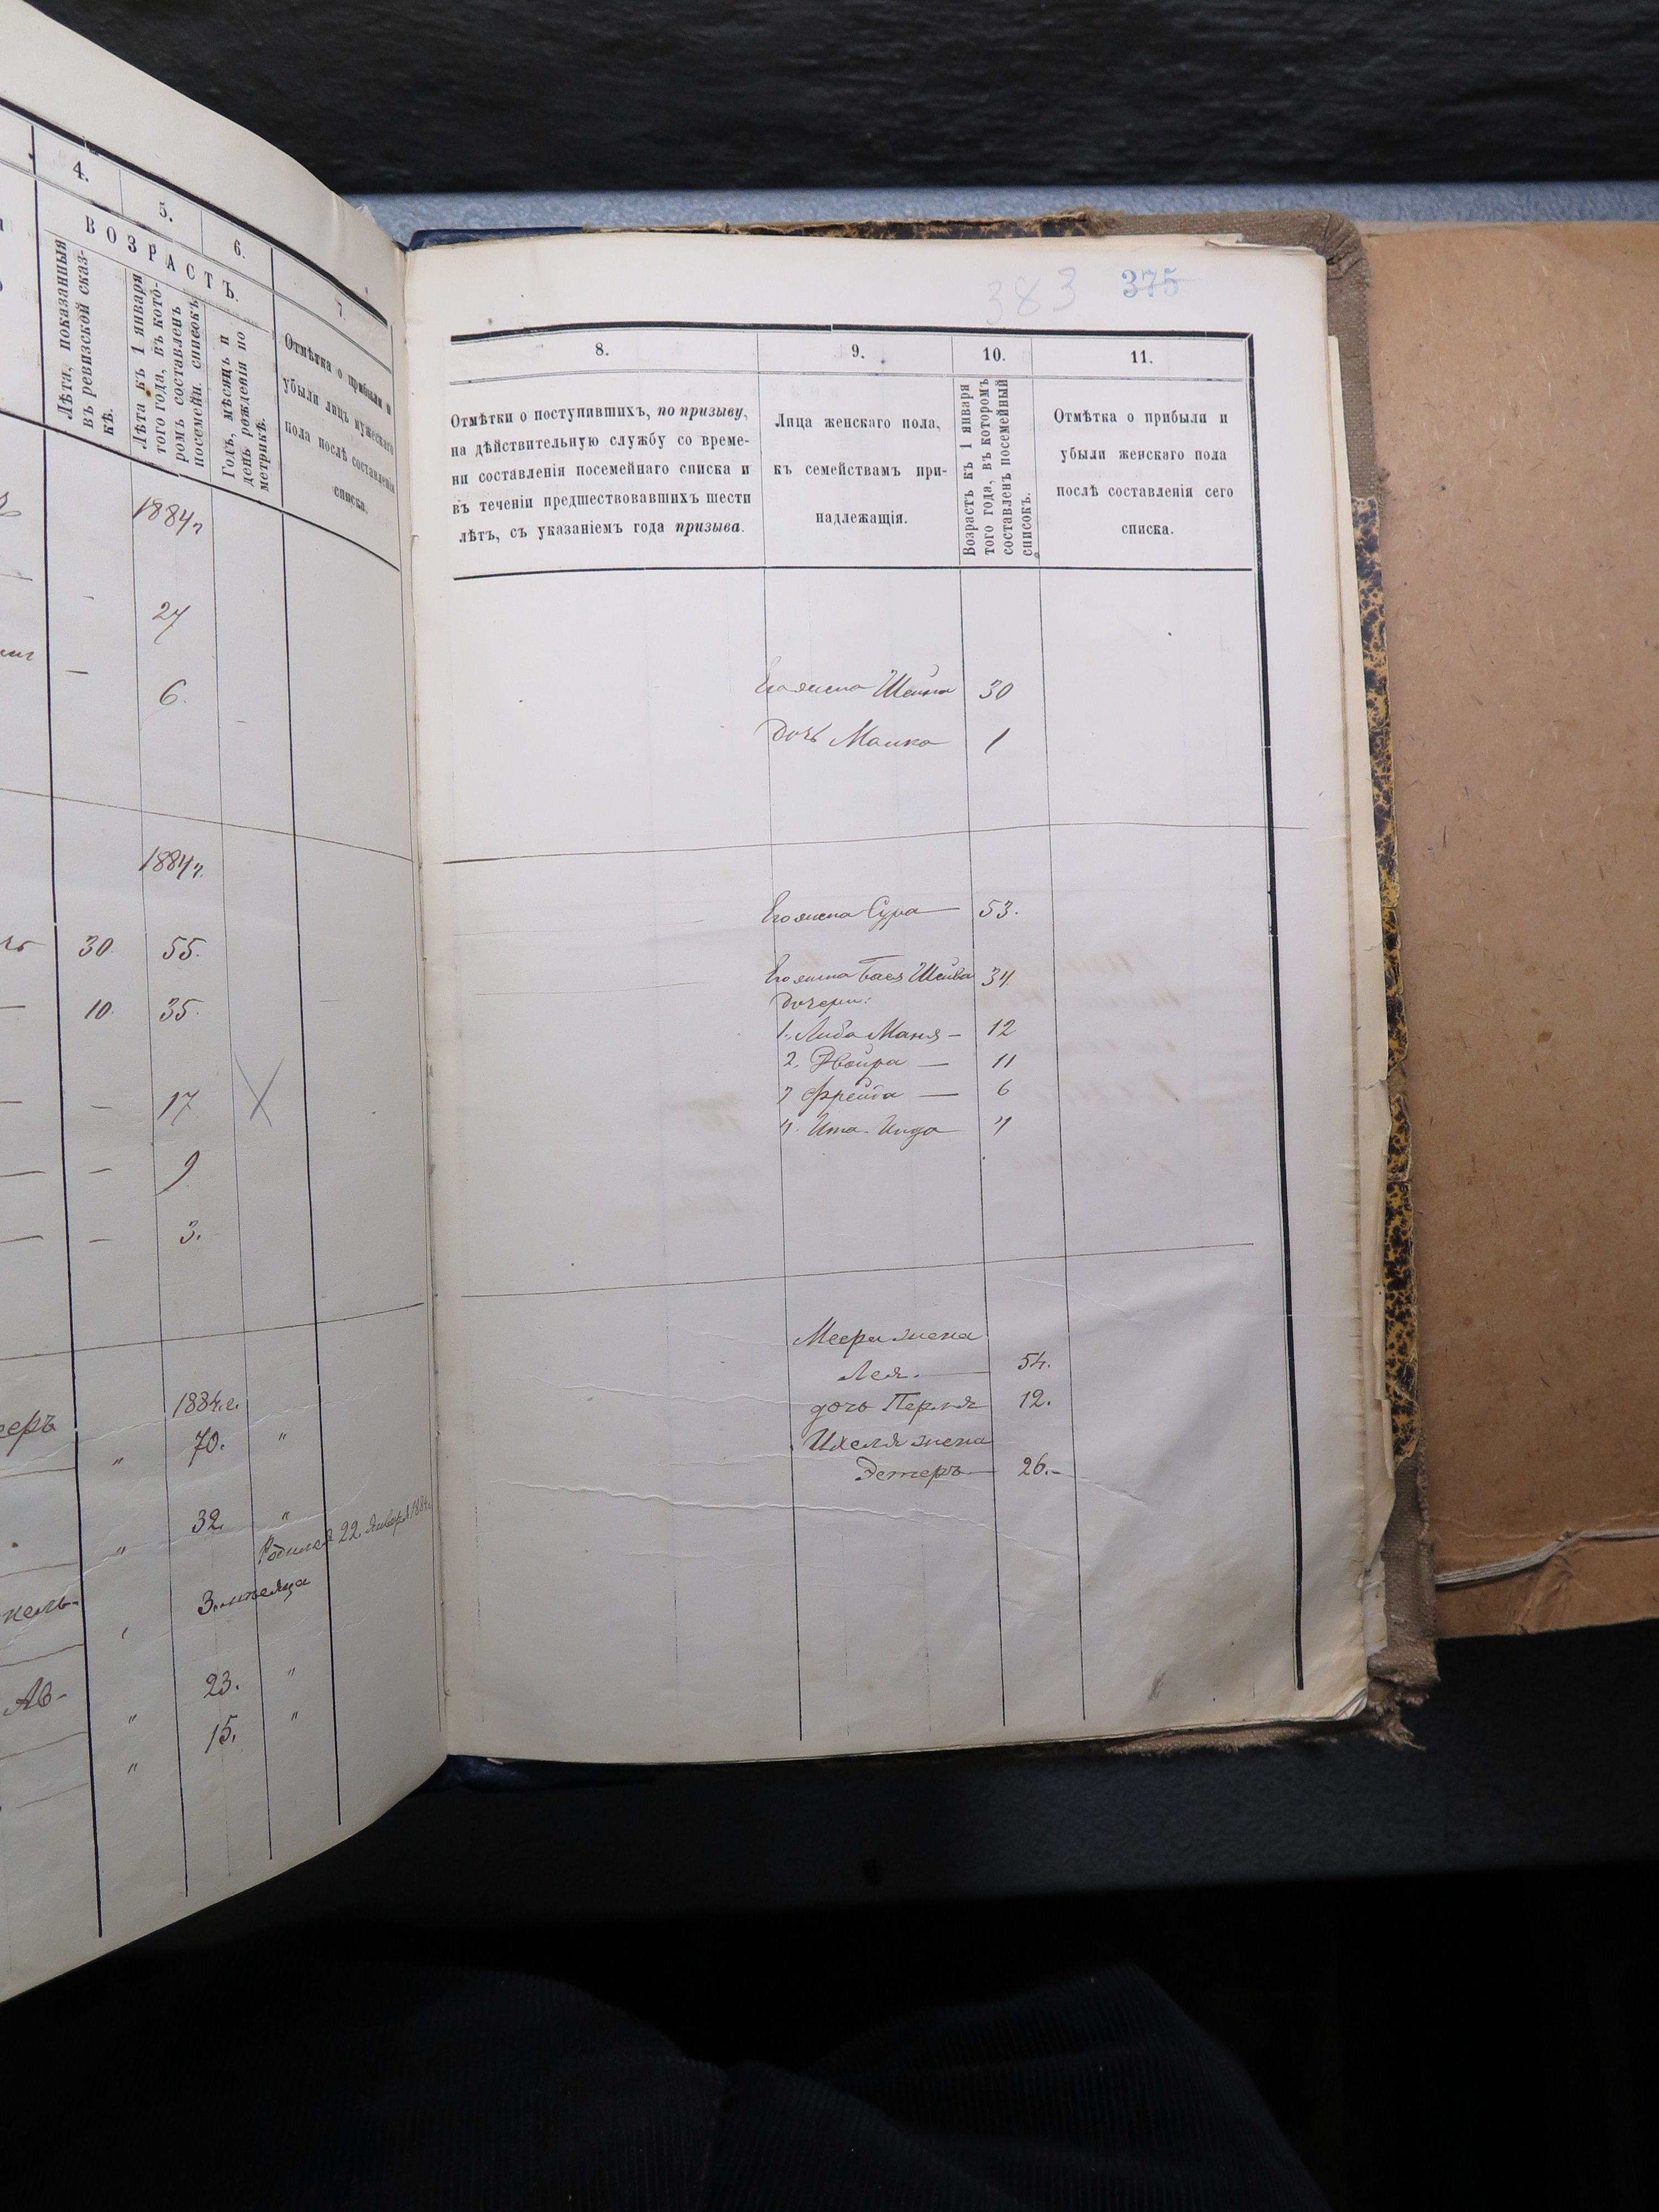 4.
5.
6.
7.
ВОЗРАСТЪ.
Лѣта, показанныя
въ ревизской сказ-
кѣ.
Лѣта къ 1 января
того года, въ кото-
ромъ составленъ
посемейн. списокъ
Годъ, мѣсяцъ и
день рожденія по
метрикѣ.
Отмѣтка о прибыли и
убыли лицъ мужескаго
пола послѣ составленія
списка.
1884г
27
6.
1884г.
30. 55.
10. 35.
17
9
3.
1884.г.
еръ " 70. "
" 32. "
Родился 22 Января 1884
3. мѣсяца
Ав- " 23. "
" 15. "
383 375
8.
9.
10.
11.
Отмѣтки о поступившихъ, по призыву,
на дѣйствительную службу со време-
ни составленія посемейнаго списка и
въ теченіи предшествовавшихъ шести
лѣтъ, съ указаніемъ года призыва.
Лица женскаго пола,
къ семействамъ при-
надлежащія.
Возрастъ къ 1 января
того года, въ которомъ
составленъ посемейный
списокъ.
Отмѣтка о прибыли и
убыли женскаго пола
послѣ составленія сего
списка.
Его жена Шейна 30
дочь Малка 1
Его жена Сура — 53.
Его жена Бася Шейва 34
дочери:
1. Либа Маня — 12
2. Двойра — 11
3 Фрейда — 6
4. Ита-Инда 4
Меера жена
Лея. — 54.
дочь Перля 12.
Ихеля жена
Эстеръ — 26.-